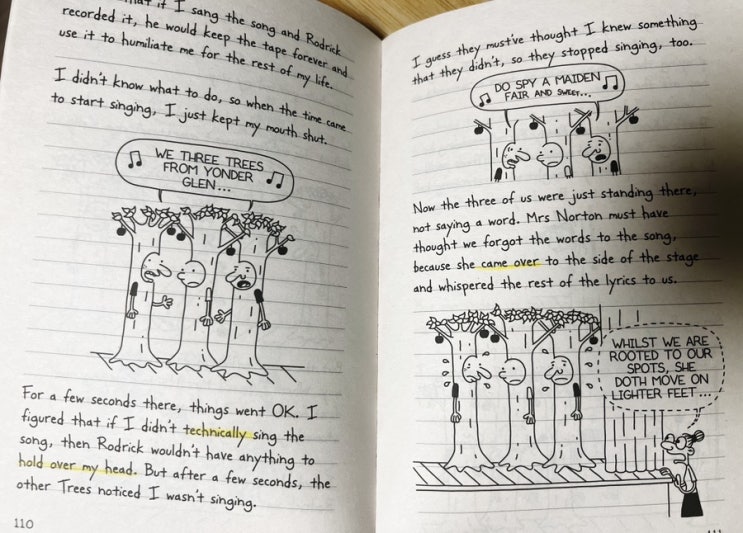 if I sang the song and Rodrick
recorded it, he would keep the tape forever and
use it to humiliate me for the rest of my life.
I didn't know what to do, so when the time came
to start singing, I just kept my mouth shut.
WE THREE TREES
FROM YONDER
GLEN...
For a few seconds there, things went OK. I
figured that if I didn't technically sing the
song, then Rodrick wouldn't have anything to
hold over my head. But after a few seconds, the
other Trees noticed I wasn't singing.
110
I guess they must've thought I knew something
that they didn't, so they stopped singing, too.
DO SPY A MAIDEN
FAIR AND SWEET...
Now the three of us were just standing there,
not saying a word. Mrs Norton must have
thought we forgot the words to the song,
because she came over to the side of the stage
and whispered the rest of the lyrics to us.
WHILST WE ARE
ROOTED TO OUR
SPOTS, SHE
DOTH MOVE ON
LIGHTER FEET...